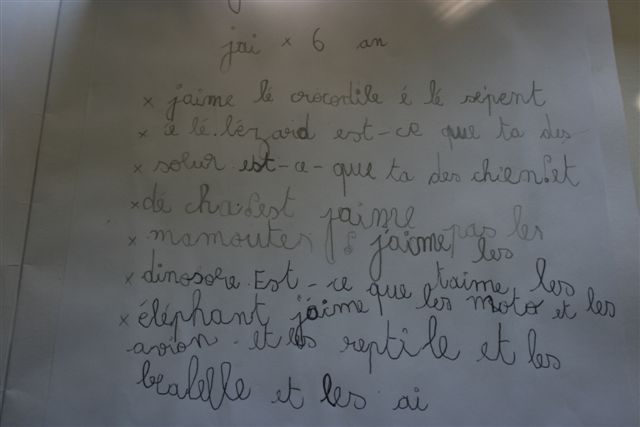 jai × 6 an
× jaime lé crocodile é lé sepent
× é lé lézard est-ce que ta des
× soeur est-ce-que ta des chien et
× dé cha est jaime
× mamoutes j'aime pas les
les
× dinosore. Est-ce que taime les
× éléphant jaime les moto et les
avion. et les reptile et les
et les ai